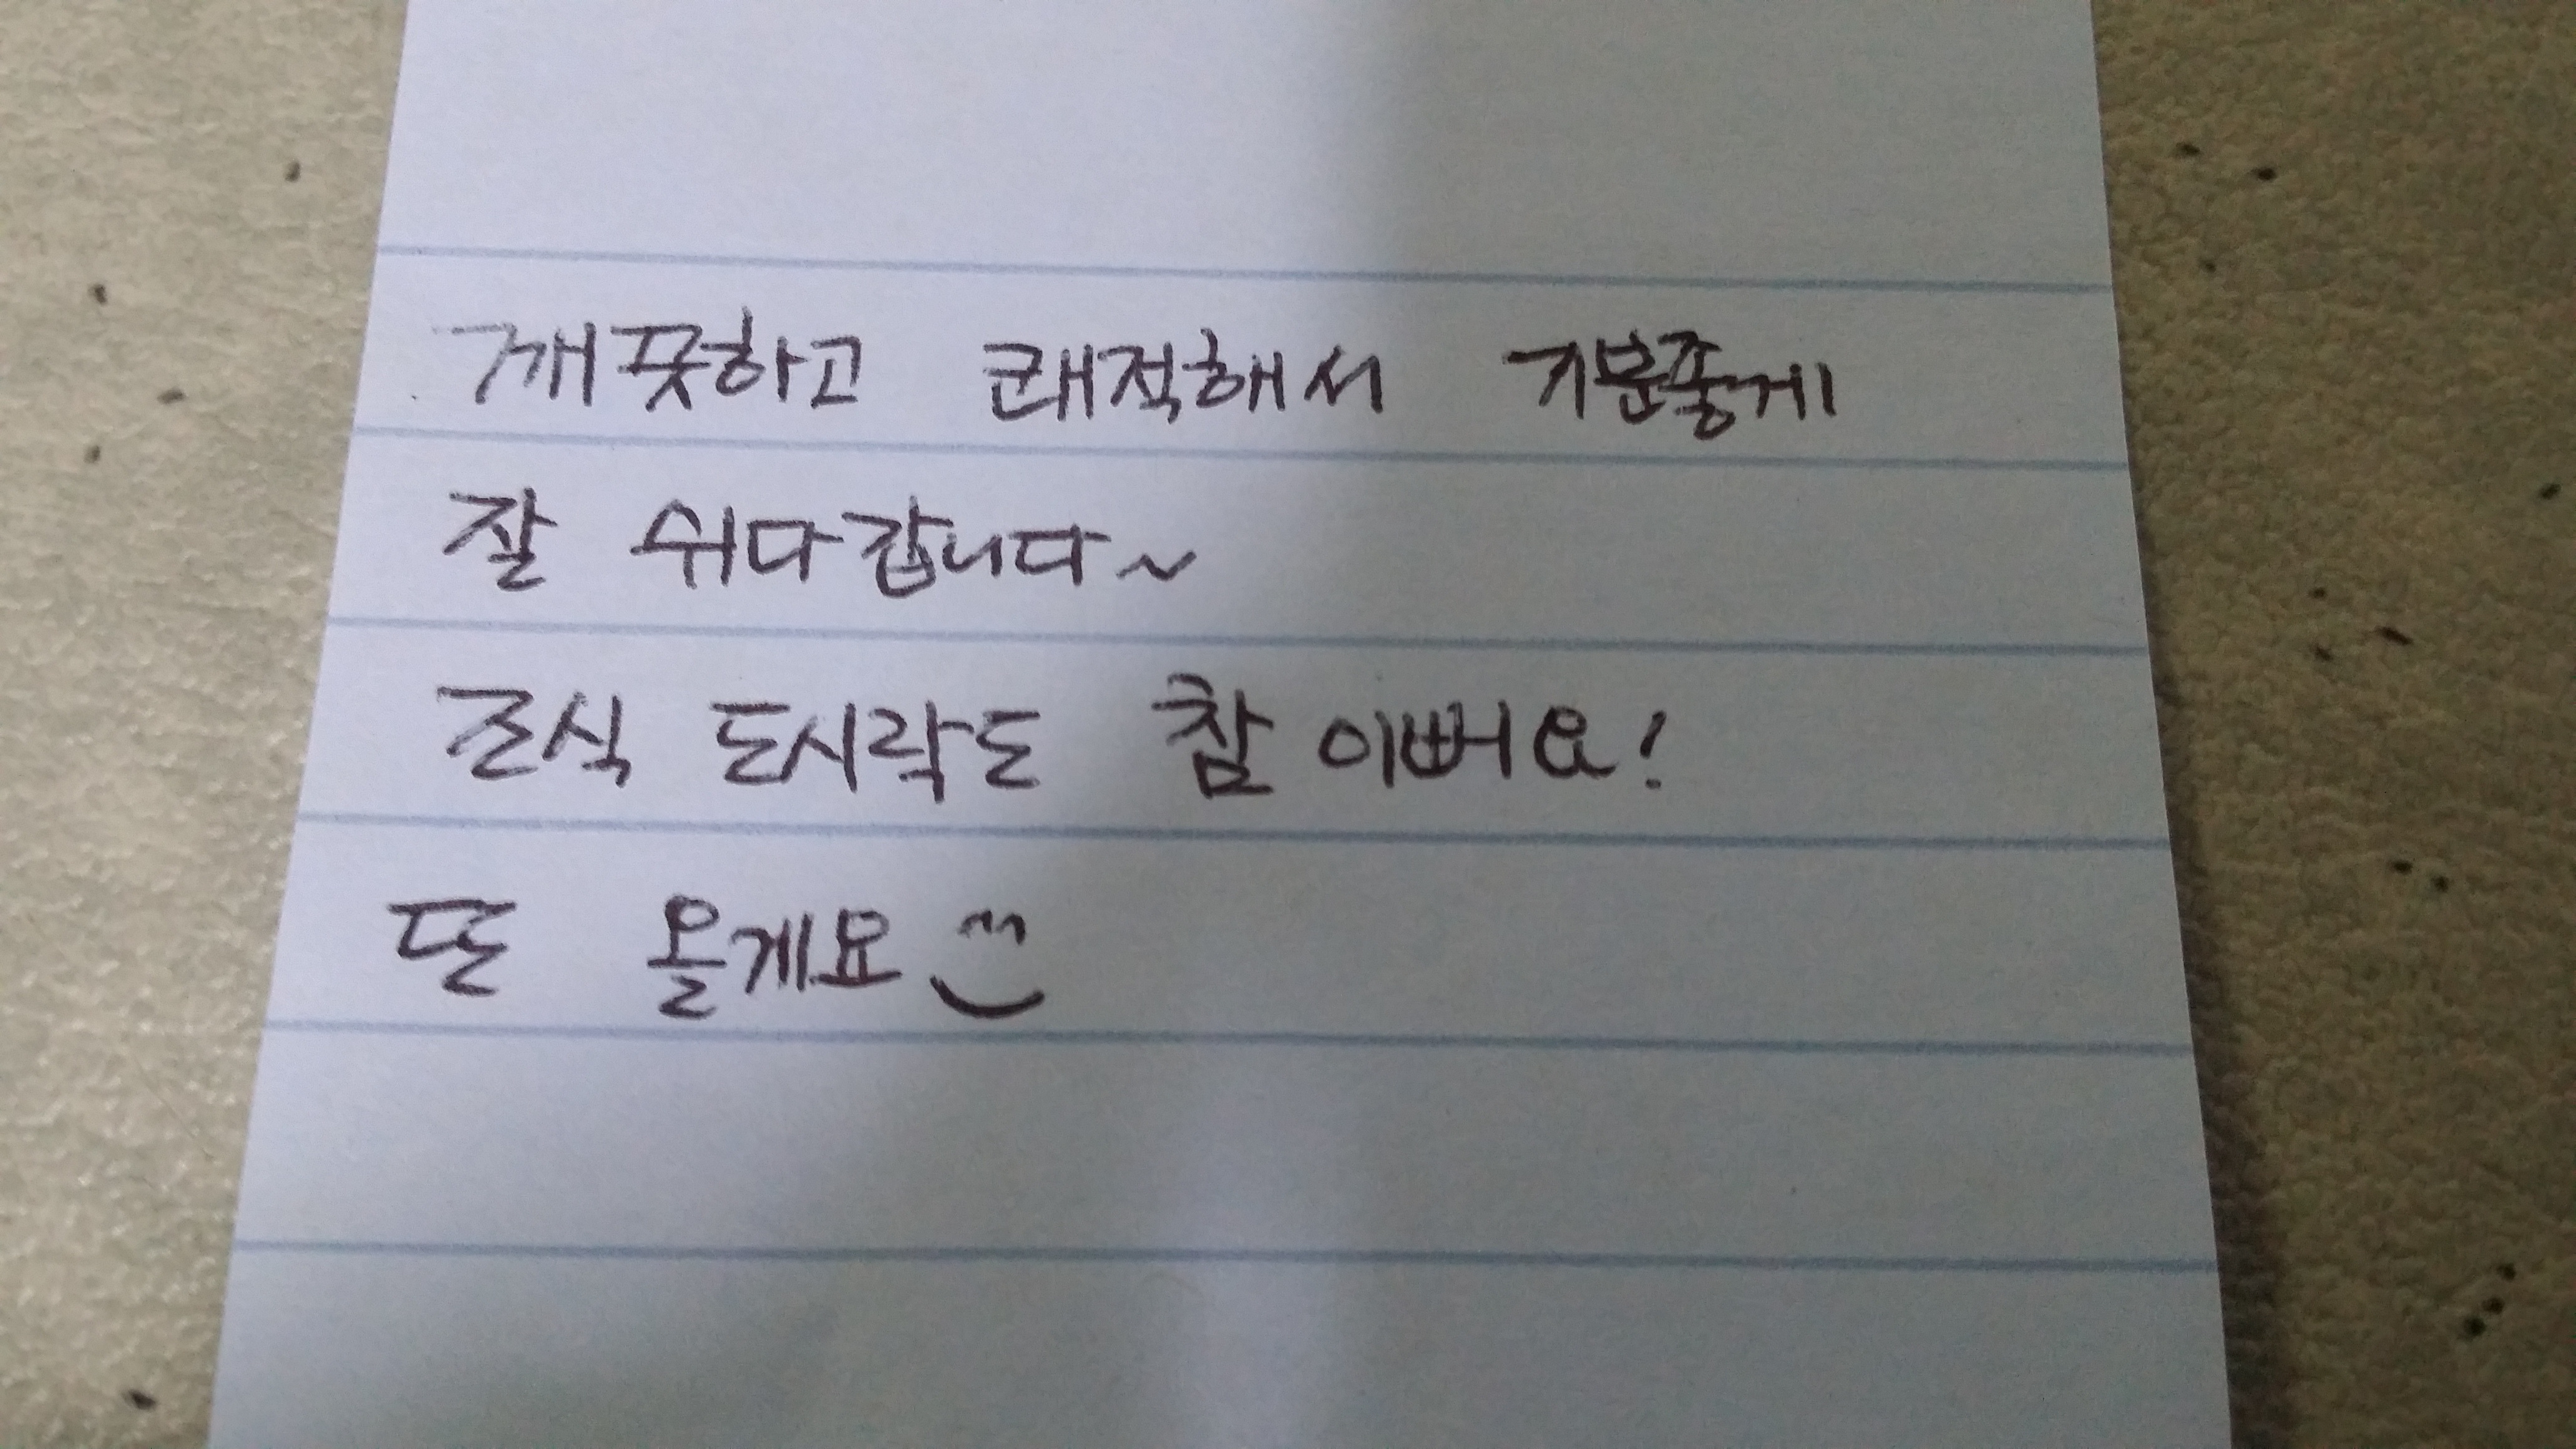 깨끗하고 쾌적해서 기분좋게
잘 쉬다갑니다~
조식 도시락도 참 이뻐요!
또 올게요